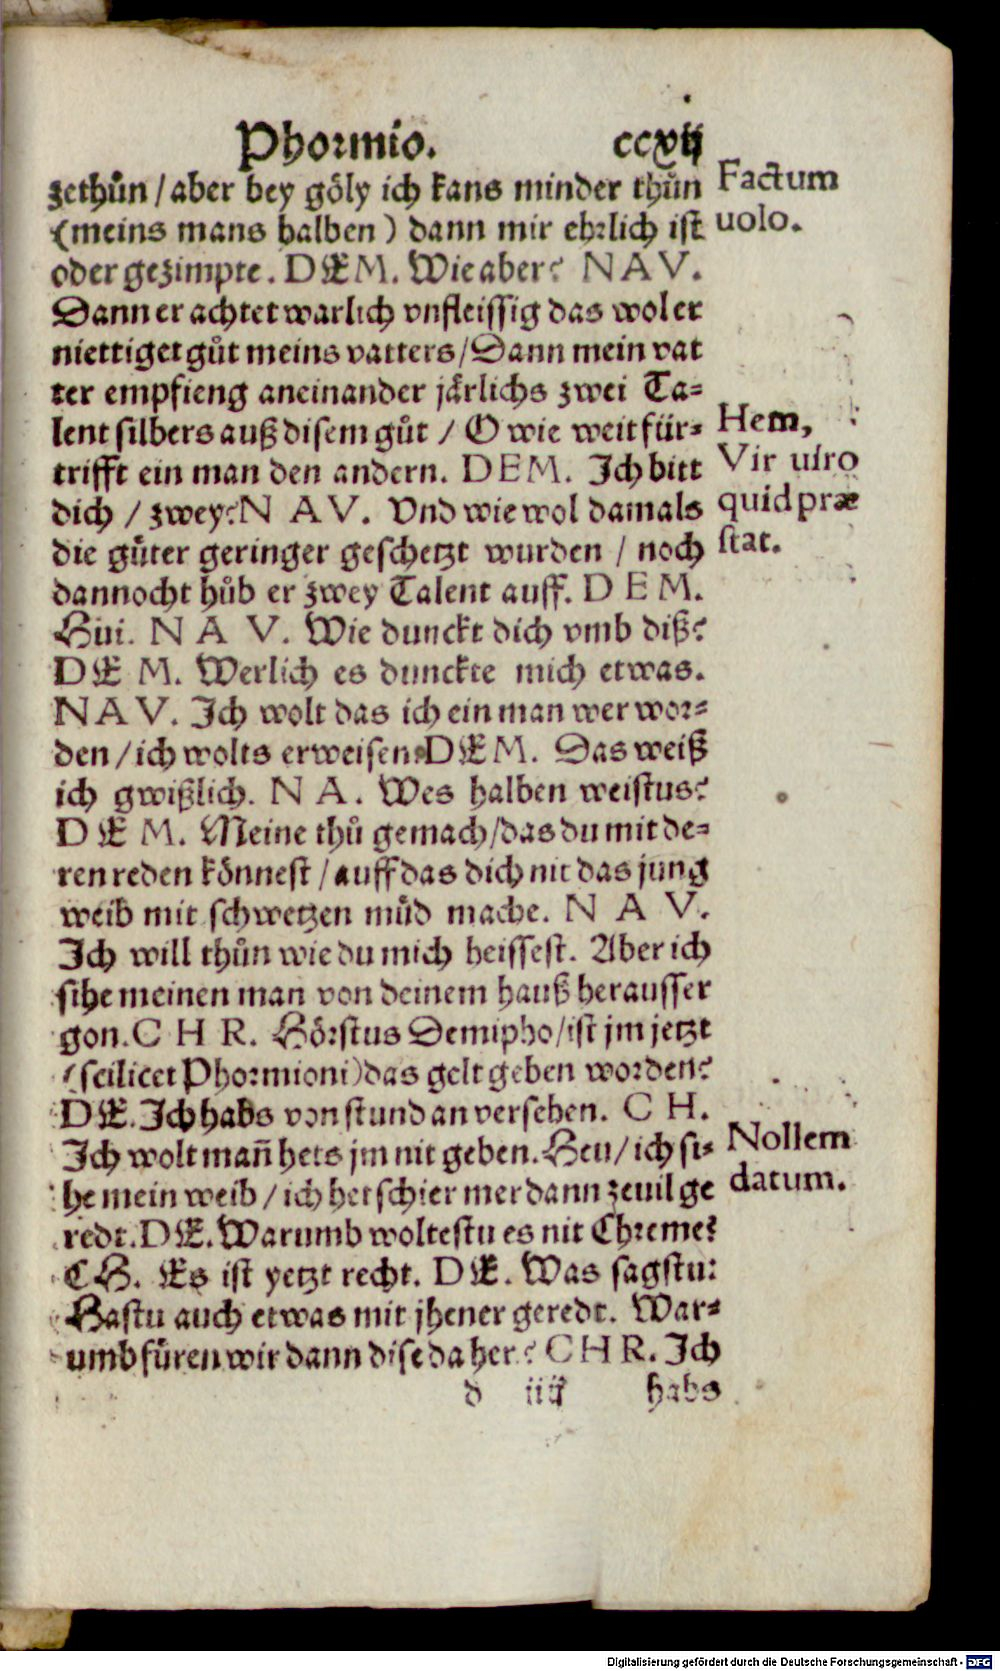 Phormio. ccxij
zethůn / aber bey göly ich kans minder thůn
(meins mans halben) dann mir ehrlich ist
oder gezimpte. DEM. Wie aber? NAV.
Dann er achtet warlich vnfleissig das wol er
niettiget gůt meins vatters / Dann mein vat
ter empfieng aneinander järlichs zwei Ta⸗
lent silbers auß disem gůt / O wie weit für⸗
trifft ein man den andern. DEM. Ich bitt
dich / zwey? NAV. Vnd wie wol damals
die güter geringer geschetzt wurden / noch
dannocht hůb er zwey Talent auff. DEM.
Hui. NAV. Wie dunckt dich vmb diß?
DEM. Werlich es dunckte mich etwas.
NAV. Ich wolt das ich ein man wer wor⸗
den / ich wolts erweisen. DEM. Das weiß
ich gwißlich. NA. Wes halben weistus?
DEM. Meine thů gemach / das du mit de⸗
ren reden könnest / auff das dich nit das jung
weib mit schwetzen müd mache. NAV.
Ich will thůn wie du mich heissest. Aber ich
sihe meinen man von deinem hauß herausser
gon. CHR. Hörstus Demipho / ist jm jetzt
(scilicet Phormioni) das gelt geben worden?
DE. Ich habs von stund an versehen. CH.
Ich wolt mañ hets jm nit geben. Heu / ich si⸗
he mein weib / ich het schier mer dann zeuil ge
redt. DE. Warumb woltestu es nit Chreme?
CH. Es ist yetzt recht. DE. Was sagstu?
Hastu auch etwas mit jhener geredt. War⸗
umb füren wir dann dise da her? CHR. Ich
d iiij habs
Factum
uolo.
Hem,
Vir uiro
quid præ
stat.
Nollem
datum.
Digitalisierung gefördert durch die Deutsche Forschungsgemeinschaft - DFG